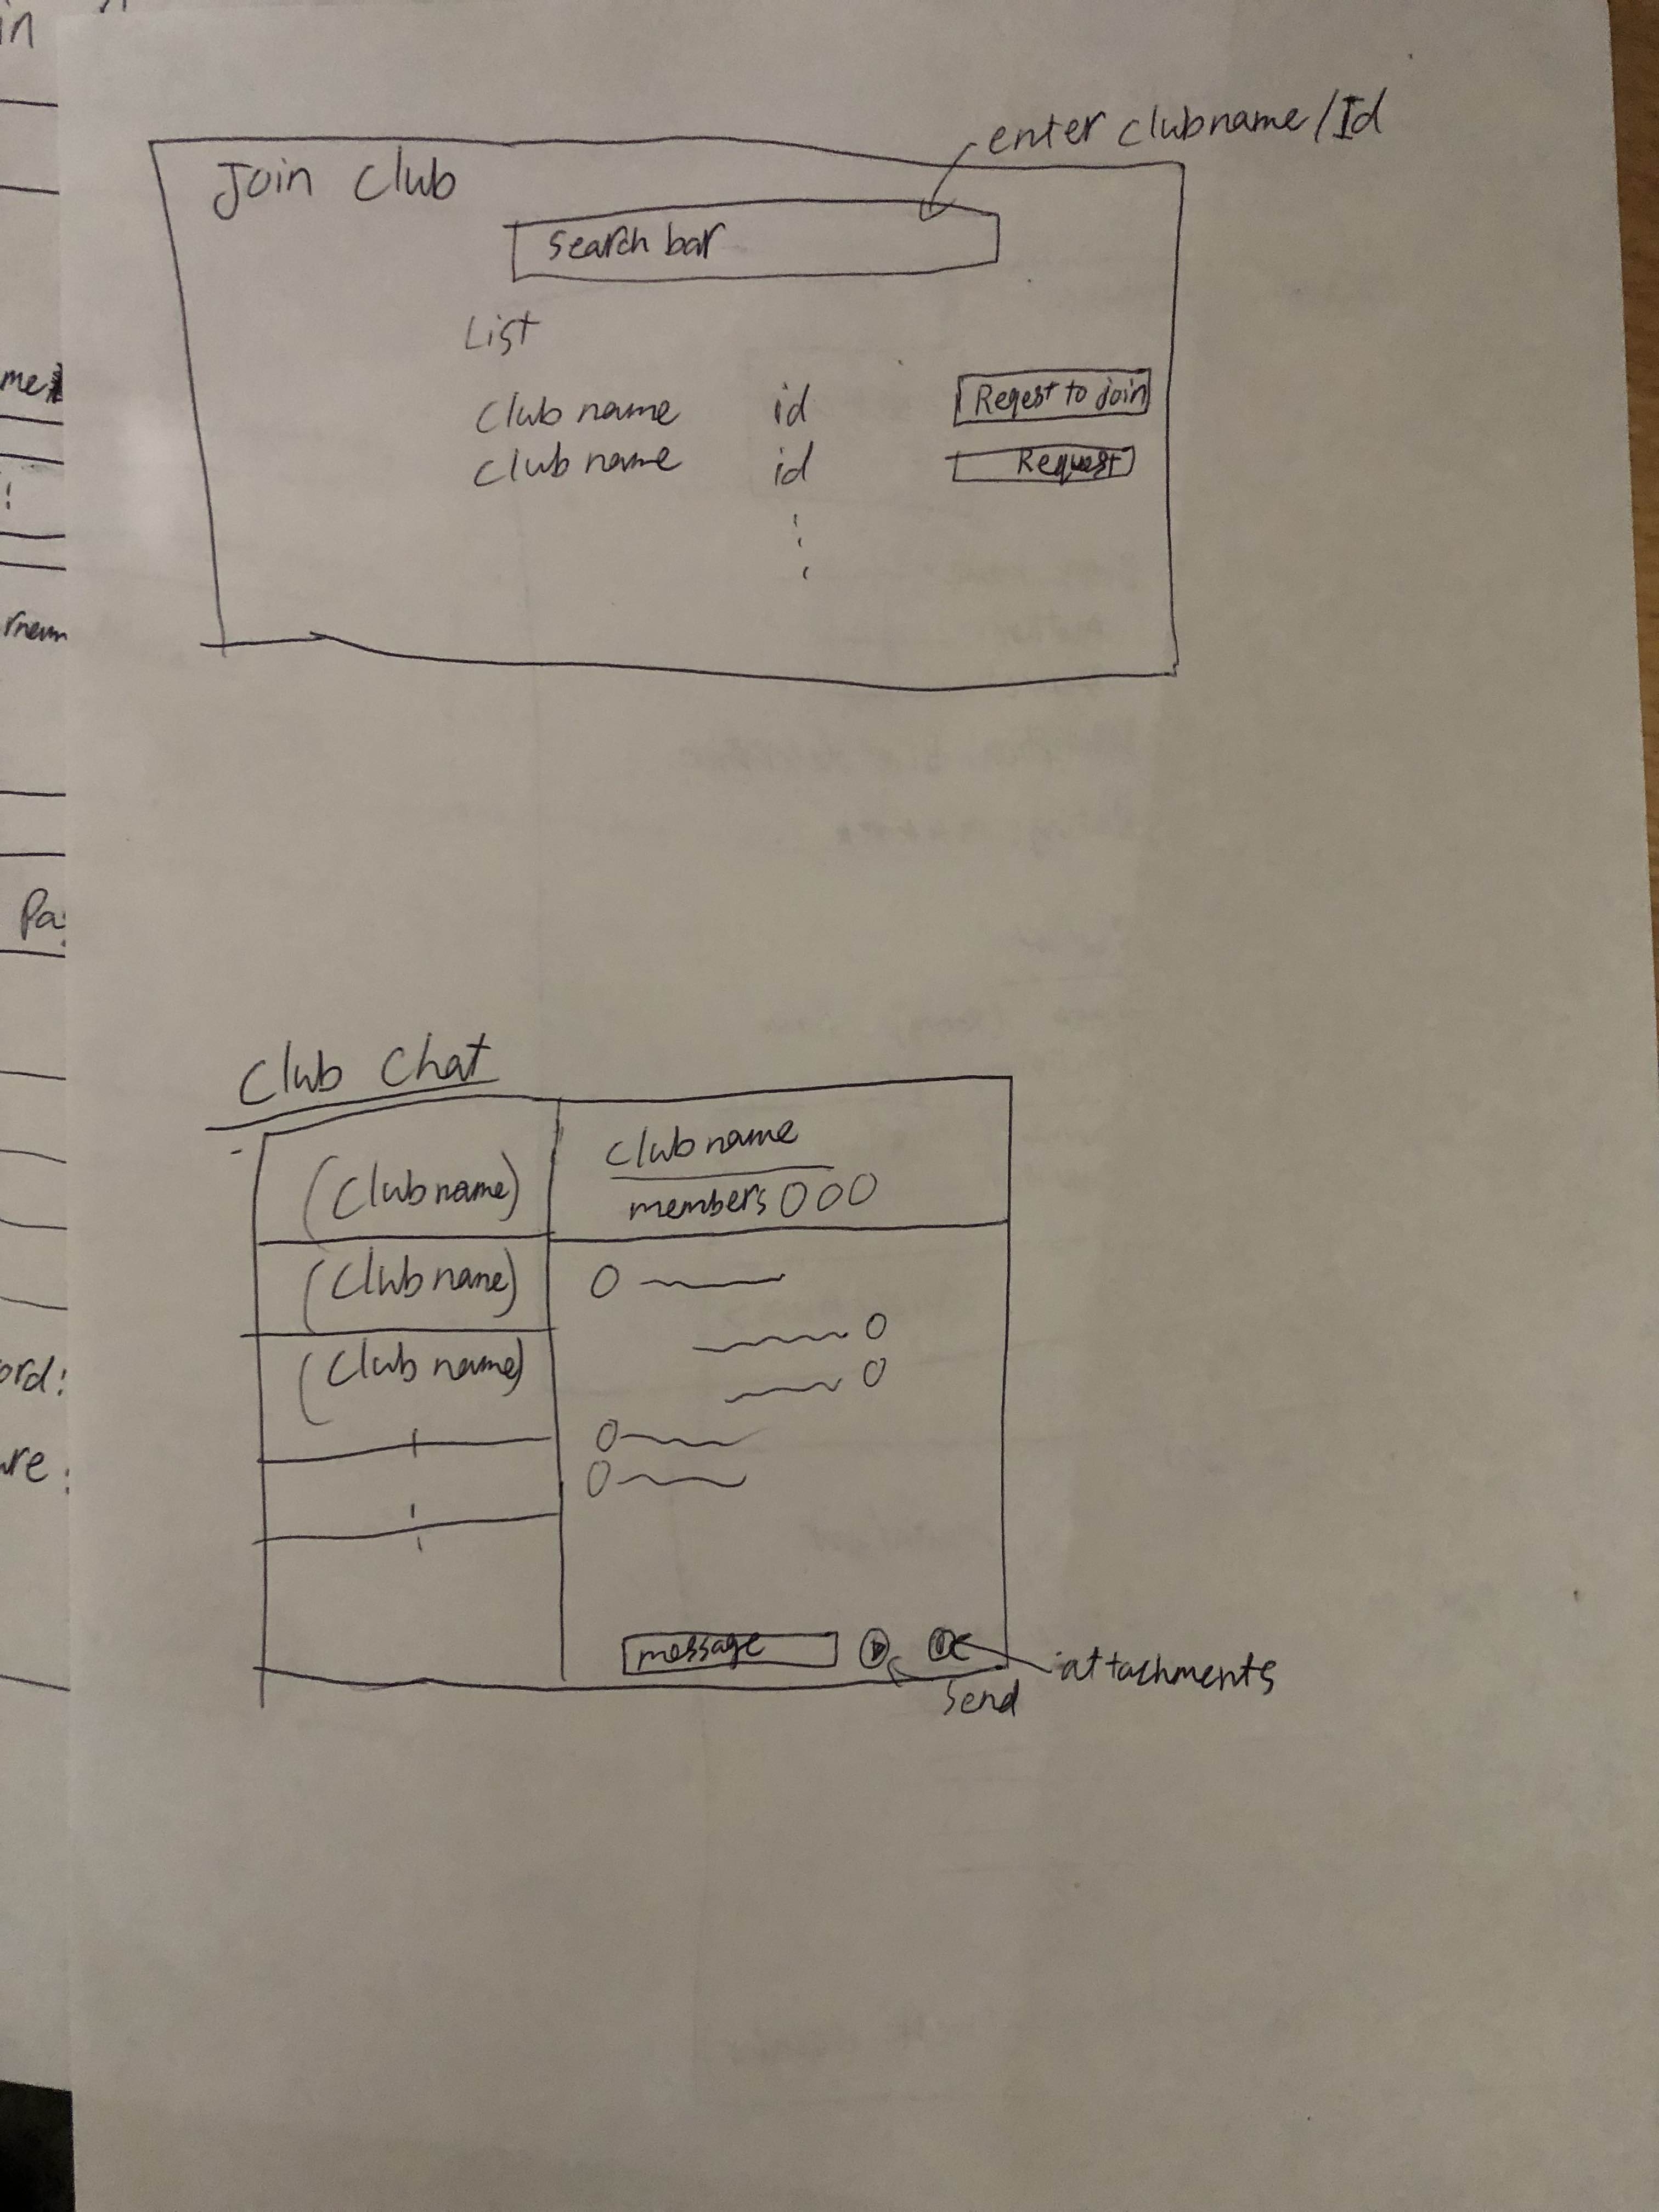 in
enter clubname/Id
Join Club
Search bar
List
Club name id Reqest to join
Club name id Request
Pa
Club Chat
(Club name)
club name
members
(Club name)
(Club name)
ord:
message
attachments
Send